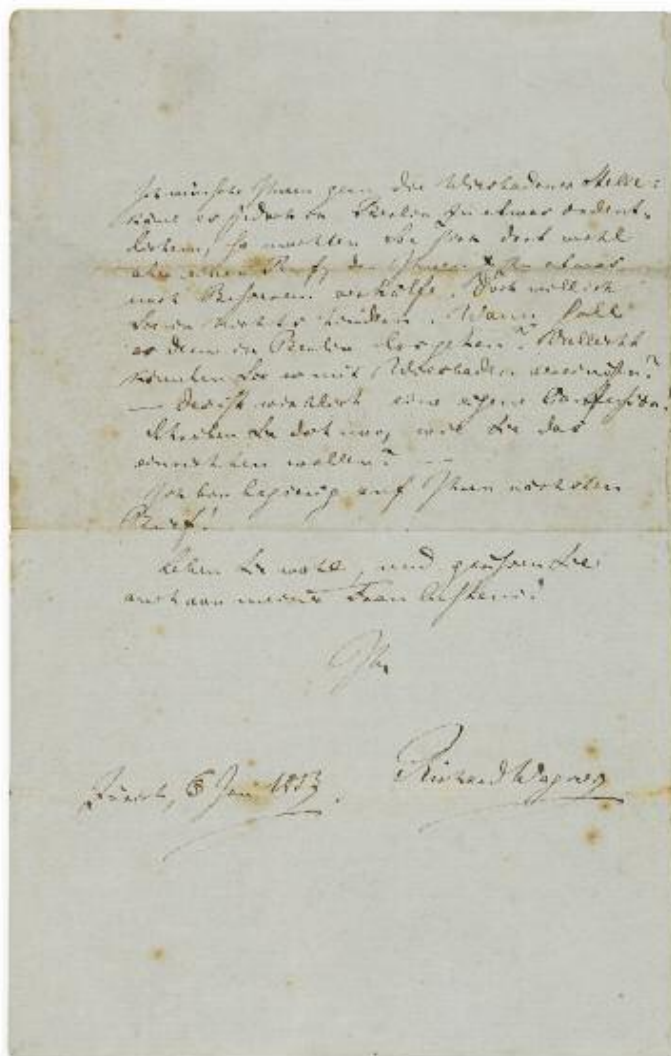 Ich wünsche Ihnen gern die Wiesbadener Stelle:
käme es jedoch in Berlin zu etwas ordent-
lichem, so machten Sie sich dort wohl
aber einen Ruf, der Ihnen zu etwas
noch Besserem verhülfe. Doch will ich
Sie in nichts hindern. Wann soll
es denn in Berlin losgehen? Vielleicht
könnten Sie es mit Wiesbaden vereinigen?
— das ist wirklich eine eigene Confusion!
Schreiben Sie doch nur, wie Sie das
einrichten wollen? —
Ich bin begierig auf Ihren nächsten
Brief!
Leben Sie wohl, und grüssen Sie
auch von meiner Frau bestens!
Ihr
Richard Wagner
Zürich, 6 Jan 1853.